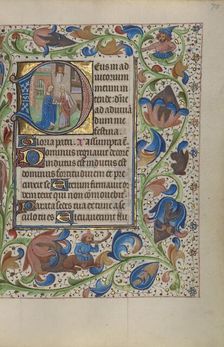 Deus in ad
iutorium
meum in
tende dñe
ad adiuua
dum me
festina
Gloria patri. A assumpta ē
Dominus regnauit decorē
indutus est indutus est
dominus fortitudinem et pre
cinxit se Etenim firmauit or
bem terre qui non cōmoueb
Parata sedes tua ex tunc a se
culo tu es Eleuauerunt flu